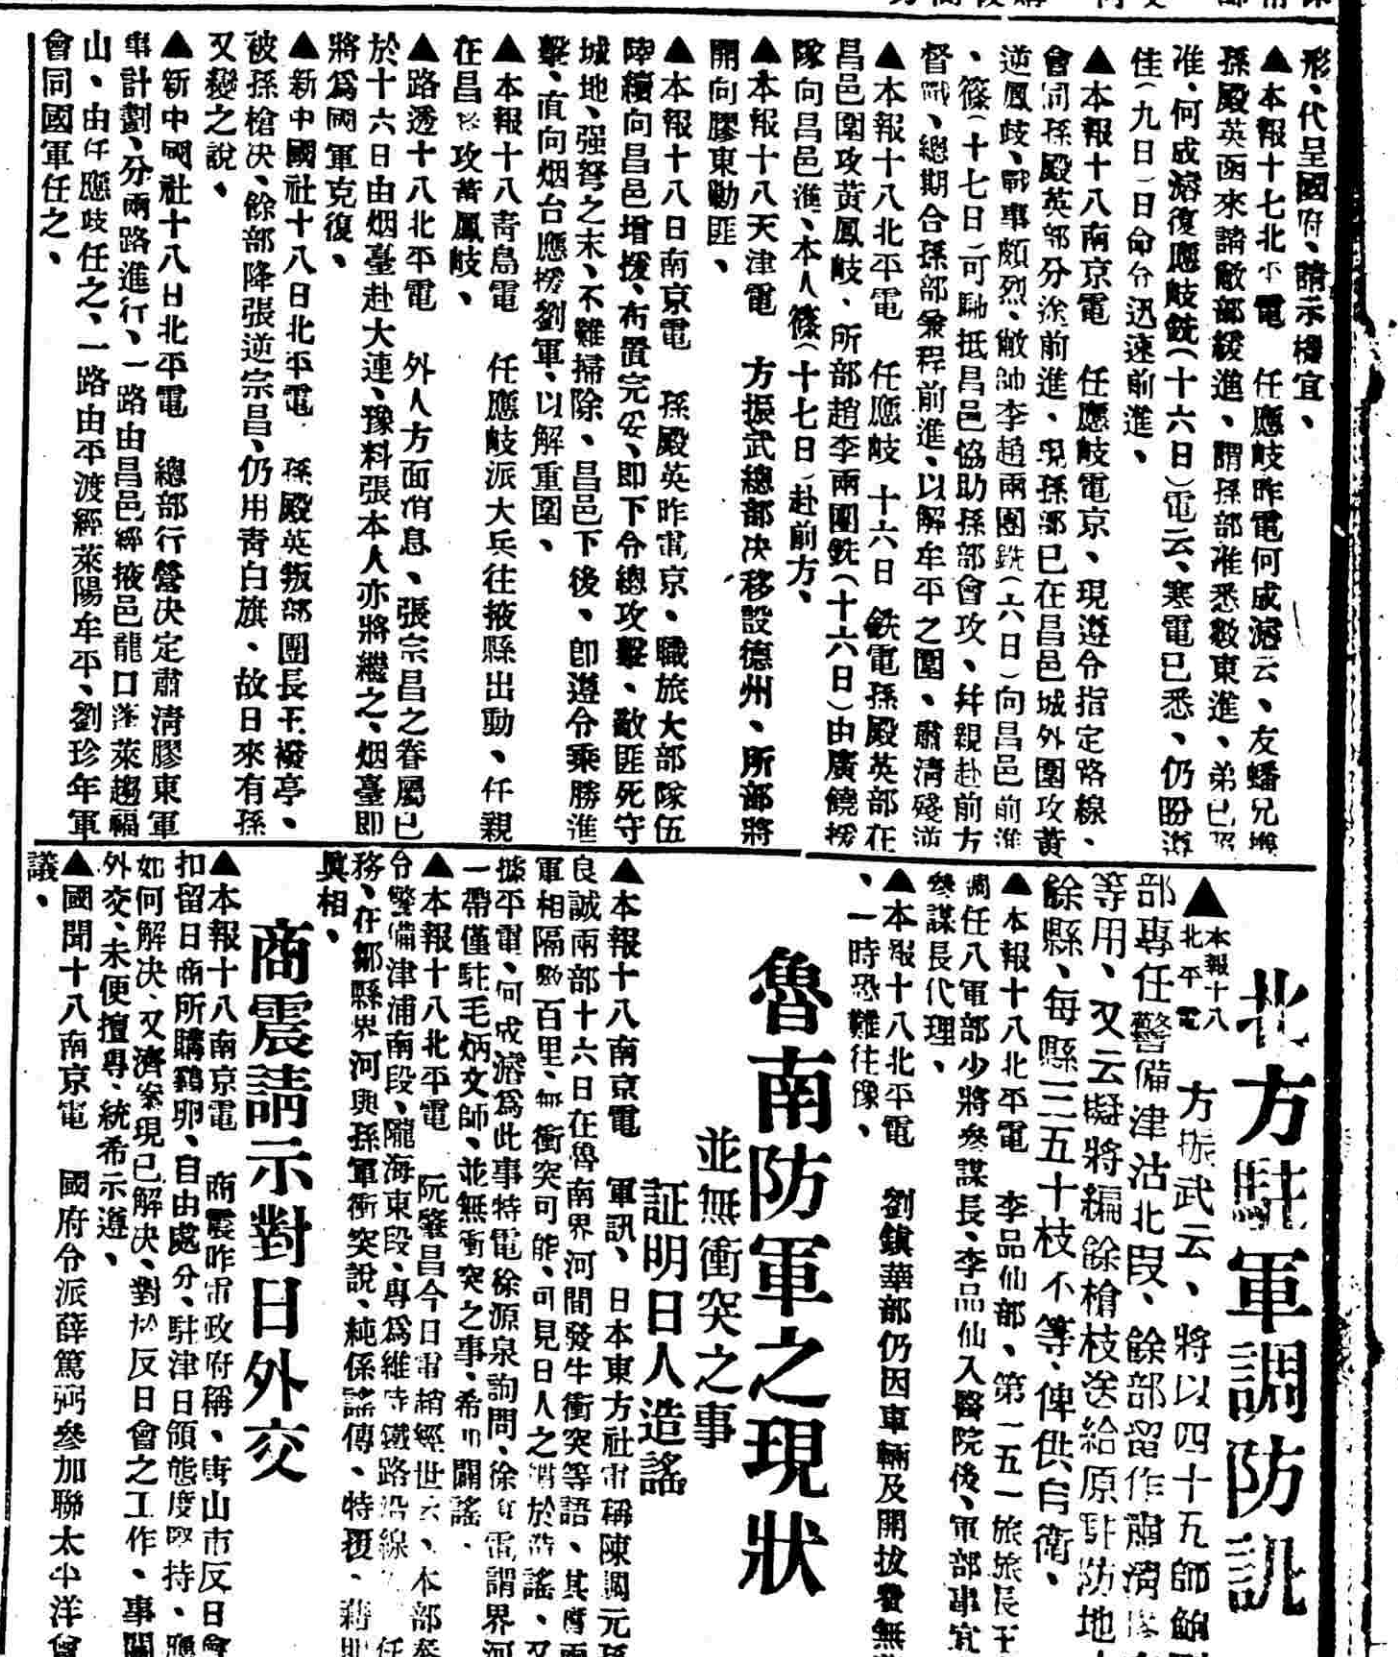 形、代呈國府、請示機宜、
▲本報十七北平電　任應歧昨電何成濬云、友蟠兄
孫殿英函來請敝部緩進、謂孫部准悉數東進、弟已
准、何成濬復應岐銑(十六日)電云、寒電已悉、仍盼遵
佳(九日)日命令迅速前進、
▲本報十八南京電　任應岐電京、現遵令指定路線、
會同孫殿英部分途前進、現孫部已在昌邑城外圍攻黃
逆鳳歧、戰事頗烈、敝師李趙兩團銑(六日)向昌邑前進
、篠(十七日)可馳抵昌邑協助孫部會攻、幷親赴前方
督戰、總期合孫部兼程前進、以解牟平之圍、肅清殘逆
▲本報十八北平電　任應岐十六日銑電孫殿英部在
昌邑圍攻黃鳳岐、所部趙李兩團銑(十六日)由廣饒援
隊向昌邑進、本人篠(十七日)赴前方、
▲本報十八天津電　方振武總部决移設德州、所部將
開向膠東勦匪、
▲本報十八日南京電　孫殿英昨電京、職旅大部隊伍
陸續向昌邑增援、布置完妥、即下令總攻擊、敵匪死守
城地、强弩之末、不難掃除、昌邑下後、即遵令乘勝進
擊、直向烟台應援劉軍、以解重圍、
▲本報十八靑島電　任應岐派大兵往掖縣出動、任親
在昌邑攻黃鳳岐、
▲路透十八北平電　外人方面消息、張宗昌之眷屬已
於十六日由烟臺赴大連、豫料張本人亦將繼之、烟臺即
將爲國軍克復、
▲新中國社十八日北平電　孫殿英叛部團長王撥亭、
被孫槍决、餘部降張逆宗昌、仍用靑白旗、故日來有孫
又變之說、
▲新中國社十八日北平電　總部行營决定肅清膠東軍
事計劃、分兩路進行、一路由昌邑經掖邑龍口蓬萊趨福
山、由任應歧任之、一路由平渡經萊陽牟平、劉珍年軍
會同國軍任之、
北方駐軍調防訊
▲本報十八北平電　方振武云、將以四十五師鮑
部專任警備津沽北段、餘部留作肅清
等用、又云擬將編餘槍枝送給原駐防地
餘縣、每縣三五十枝不等、俾供自衛、
▲本報十八北平電　李品仙部、第一五一旅旅長王
調任八軍部少將參謀長、李品仙入醫院後、軍部事宜
參謀長代理、
▲本報十八北平電　劉鎮華部仍因車輛及開拔費無
、一時恐難往豫、
魯南防軍之現狀
並無衝突之事
証明日人造謠
▲本報十八南京電　軍訊、日本東方社電稱陳調元孫
良誠兩部十六日在魯南界河間發生衝突等語、其實兩
軍相隔數百里、無衝突可能、可見日人之慣於造謠、又
據平電、何成濬爲此事特電徐源泉詢問、徐電謂界河
一帶僅駐毛炳文師、並無衝突之事、希即闢謠、
▲本報十八北平電　阮肇昌今日電趙經世云、本部奉
令警備津浦南段、隴海東段、專爲維持鐵路沿線任
務、在鄒縣界河與孫軍衝突說、純係謠傳、特復、
眞相、
商震請示對日外交
▲本報十八南京電　商震昨電政府稱、唐山市反日會
扣留日商所購鷄卵、自由處分、駐津日領態度堅持、應
如何解决、又濟案現已解决、對於反日會之工作、事關
外交、未便擅專、統希示遵、
▲國聞十八南京電　國府令派薛篤弼參加聯太平洋會
議、